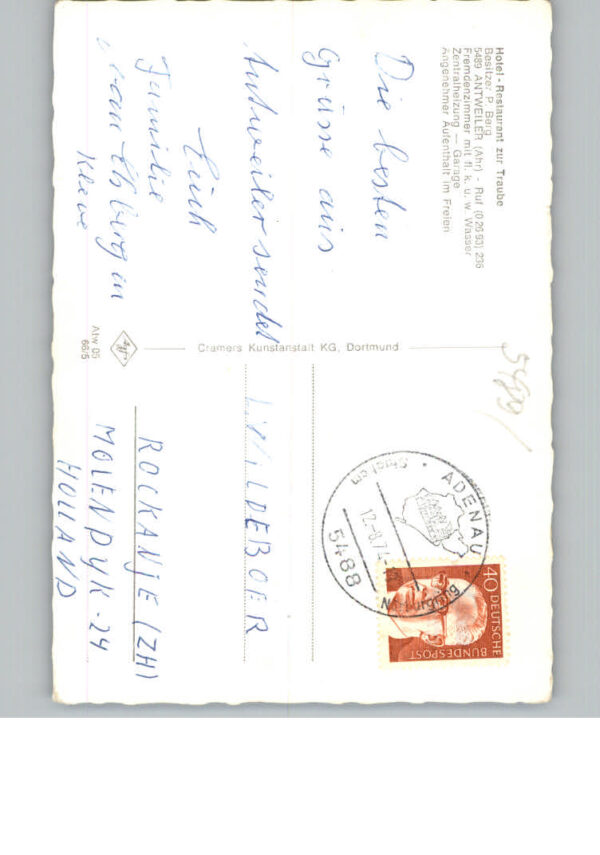 Hotel-Restaurant zur Traube
Besitzer P. Berg
5489 ANTWEILER (Ahr) - Ruf (0 26 93) 236
Fremdenzimmer mit fl. k. u. w. Wasser
Zentralheizung — Garage
Angenehmer Aufenthalt im Freien
Die besten
Grüsse aus
Antweiler sendet
Euch
Familie
van Elsberg in
Kleve
Atw 05
66/5
Cramers Kunstanstalt KG, Dortmund
5489/
ADENAU
12.-8.7
5488
40 DEUTSCHE
BUNDESPOST
WILDEBOER
ROCKANJE (ZH)
MOLENDYK-24
HOLLAND